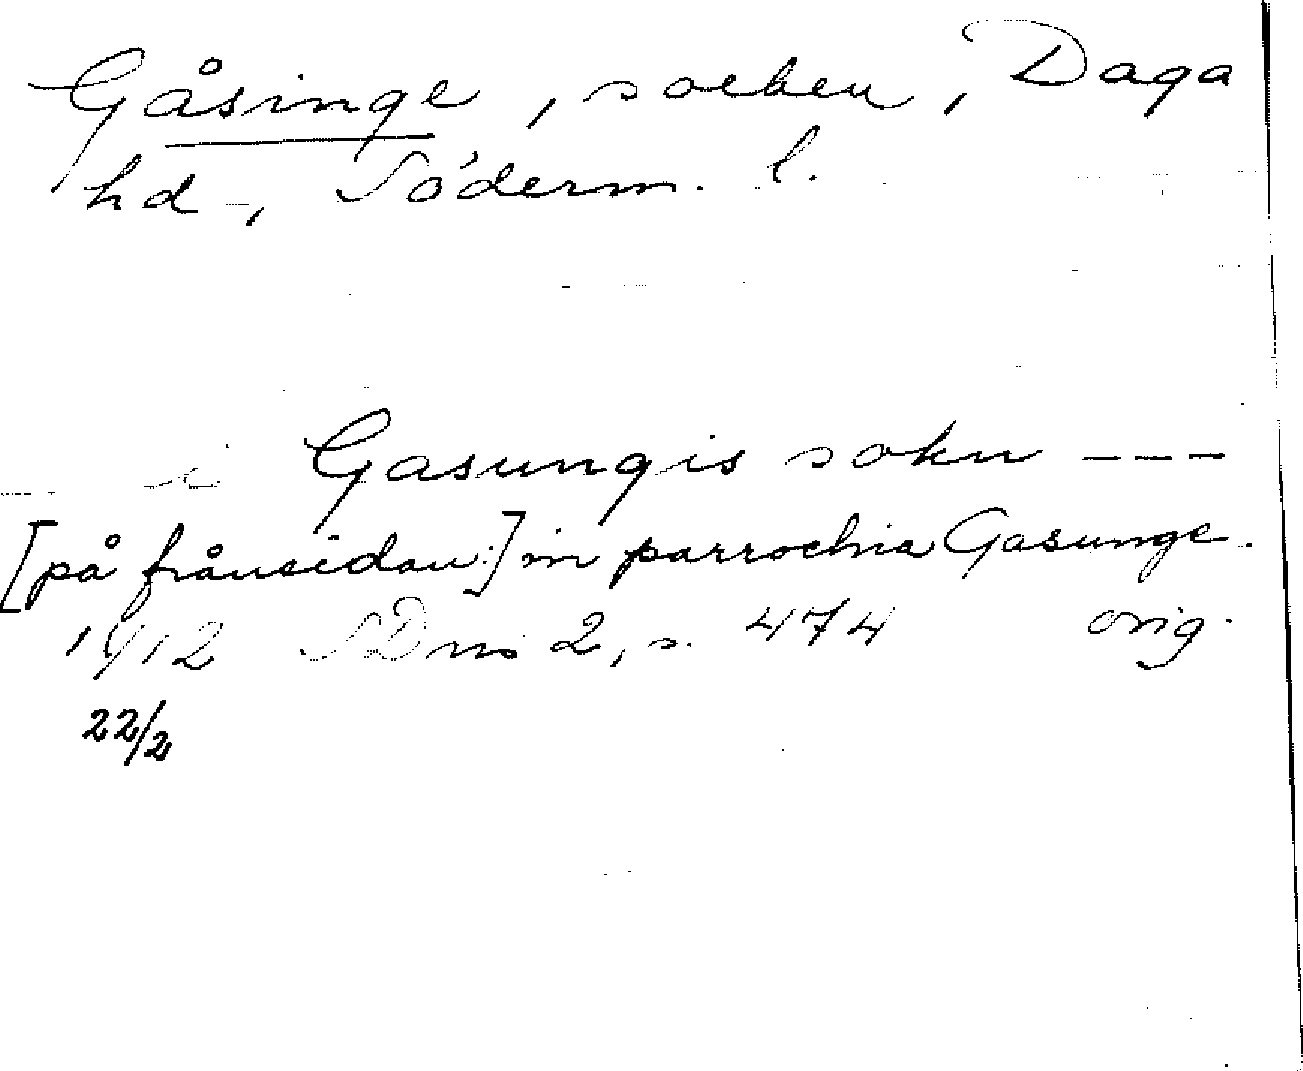 Gåsinge, socken, Daga
hd, Söderm. l.
i Gasungis sokn ---
[på frånsidan:] in parrochia Gasunge.
1412 SDns 2, s. 474 orig.
22/2